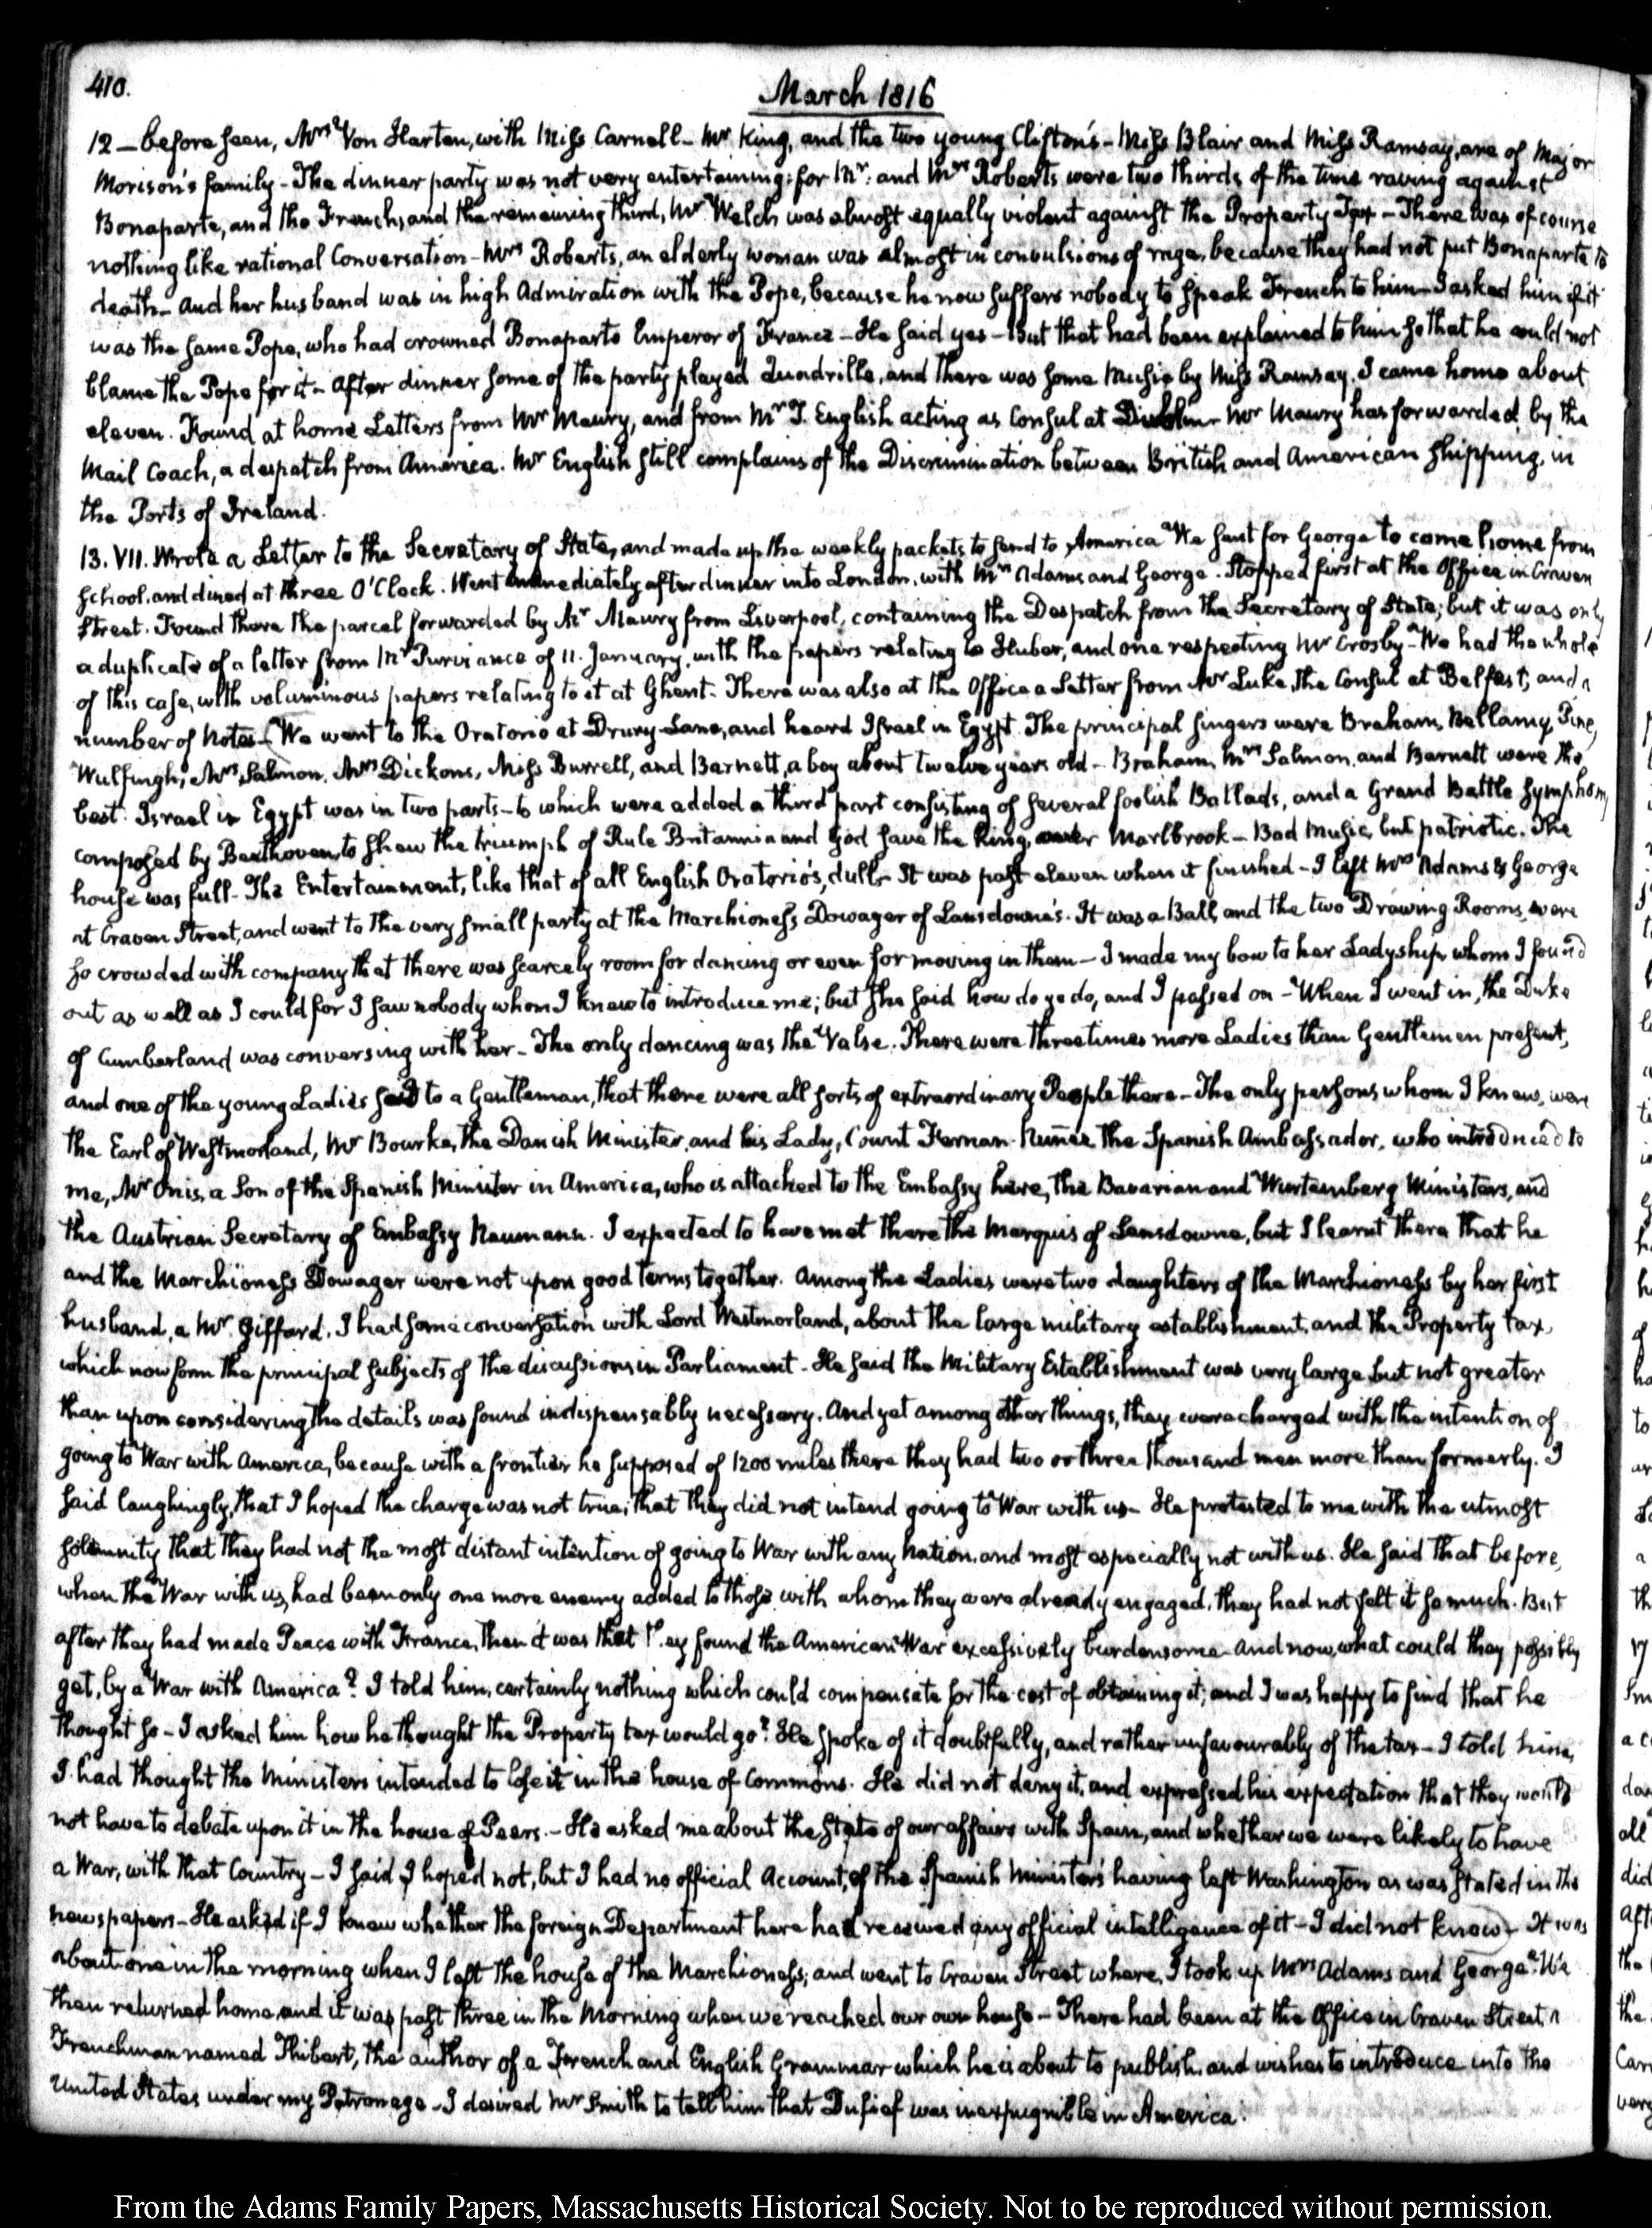 410.
March 1816
12 — before seen, Mrs. Von Harten, with Miss Carnell - Mr King, and the two young Clifton's - Miss Blair and Miss Ramsay, one of Major
Morison's family - The dinner party was not very entertaining; for Mr. and Mrs Roberts were two thirds of the time raving against
Bonaparte, and the French, and the remaining third, Mr. Welch was almost equally violent against the Property Tax - There was of course
nothing like rational Conversation - Mrs Roberts, an elderly woman was almost in convulsions of rage, because they had not put Bonaparte to
death - and her husband was in high Admiration with the Pope, because he now suffers nobody to speak French to him - I asked him if it
was the same Pope, who had crowned Bonaparte Emperor of France - He said yes - But that had been explained to him so that he could not
blame the Pope for it - After dinner some of the party played Quadrille, and there was some Music by Miss Ramsay. I came home about
eleven. Found at home Letters from Mr Maury, and from Mr T. English acting as Consul at Dublin - Mr Maury has forwarded, by the
Mail Coach, a despatch from America. Mr English still complains of the Discrimination between British and American Shipping, in
the Ports of Ireland.
13. VII. Wrote a Letter to the Secretary of State, and made up the weekly packets to send to America We sent for George to come home from
School, and dined at three O'Clock. Went immediately after dinner into London, with Mrs Adams and George. Stopped first at the Office in Craven
Street. Found there the parcel forwarded by Mr Maury from Liverpool, containing the Despatch from the Secretary of State; but it was only
a duplicate of a letter from Mr Purviance of 11. January, with the papers relating to Huber, and one respecting Mr Crosby - We had the whole
of this case, with voluminous papers relating to it at Ghent - There was also at the Office a Letter from Mr Luke, the Consul at Belfast, and a
number of Notes - We went to the Oratorio at Drury-Lane, and heard Israel in Egypt. The principal singers were Braham, Bellamy, Pyne,
Wulfingh, Mrs Salmon, Mrs Dickons, Miss Burrell, and Barnett, a boy about twelve years old - Braham, Mrs Salmon, and Barnett were the
best. Israel in Egypt was in two parts - to which were added a third part consisting of several foolish Ballads, and a Grand Battle Symphony,
composed by Beethoven, to shew the triumph of Rule Britannia and God save the King, over Marlbrook - Bad Music, but patriotic. The
house was full - The Entertainment, like that of all English Oratorio's, dull - It was past eleven when it finished - I left Mrs Adams & George
at Craven Street, and went to the very small party at the Marchioness Dowager of Lansdowne's. It was a Ball, and the two Drawing Rooms were
so crowded with company that there was scarcely room for dancing or even for moving in them - I made my bow to her Ladyship whom I found
out as well as I could for I saw nobody whom I knew to introduce me; but she said how do ye do, and I passed on - When I went in, the Duke
of Cumberland was conversing with her - The only dancing was the Valse. There were three times more Ladies than Gentlemen present,
and one of the young Ladies said to a Gentleman, that there were all sorts of extraordinary People there - The only persons whom I knew, were
the Earl of Westmorland, Mr Bourke, the Danish Minister, and his Lady, Count Fernan-Nuñez the Spanish Ambassador, who introduced to
me, Mr Onis, a Son of the Spanish Minister in America, who is attached to the Embassy here, the Bavarian and Wurtemberg Ministers, and
the Austrian Secretary of Embassy Neumann. I expected to have met there the Marquis of Lansdowne, but I learnt there that he
and the Marchioness Dowager were not upon good terms together. Among the Ladies were two daughters of the Marchioness by her first
husband, a Mr. Gifford. I had some conversation with Lord Westmorland, about the large military establishment, and the Property tax,
which now form the principal subjects of the discussions in Parliament - He said the Military Establishment was very large but not greater
than upon considering the details was found indispensably necessary. And yet among other things, they were charged with the intention of
going to War with America, because with a frontier he supposed of 1200 miles there they had two or three thousand men more than formerly. I
said laughingly, that I hoped the charge was not true; that they did not intend going to War with us - He protested to me with the utmost
solemnity that they had not the most distant intention of going to War with any Nation, and most especially not with us. He said that before,
when the War with us, had been only one more enemy added to those with whom they were already engaged, they had not felt it so much. But
after they had made Peace with France, then it was that they found the American War excessively burdensome - And now, what could they possibly
get, by a War with America? I told him, certainly nothing which could compensate for the cost of obtaining it; and I was happy to find that he
thought so - I asked him how he thought the Property tax would go? He spoke of it doubtfully, and rather unfavourably of the tax - I told him,
I had thought the Ministers intended to lose it in the house of Commons. He did not deny it, and expressed his expectation that they would
not have to debate upon it in the house of Peers. - He asked me about the State of our affairs with Spain, and whether we were likely to have
a War, with that Country - I said I hoped not, but I had no official Account, of the Spanish Minister's having left Washington as was stated in the
newspapers - He asked if I knew whether the foreign Department here had received any official intelligence of it - I did not know - It was
about one in the morning when I left the house of the Marchioness; and went to Craven Street where, I took up Mrs Adams and George. We
then returned home, and it was past three in the Morning when we reached our own house - There had been at the Office in Craven Street a
Frenchman named Thibert, the author of a French and English Grammar which he is about to publish, and wishes to introduce into the
United States under my Patronage - I desired Mr Smith to tell him that Dufief was inexpugnible in America.
From the Adams Family Papers, Massachusetts Historical Society. Not to be reproduced without permission.